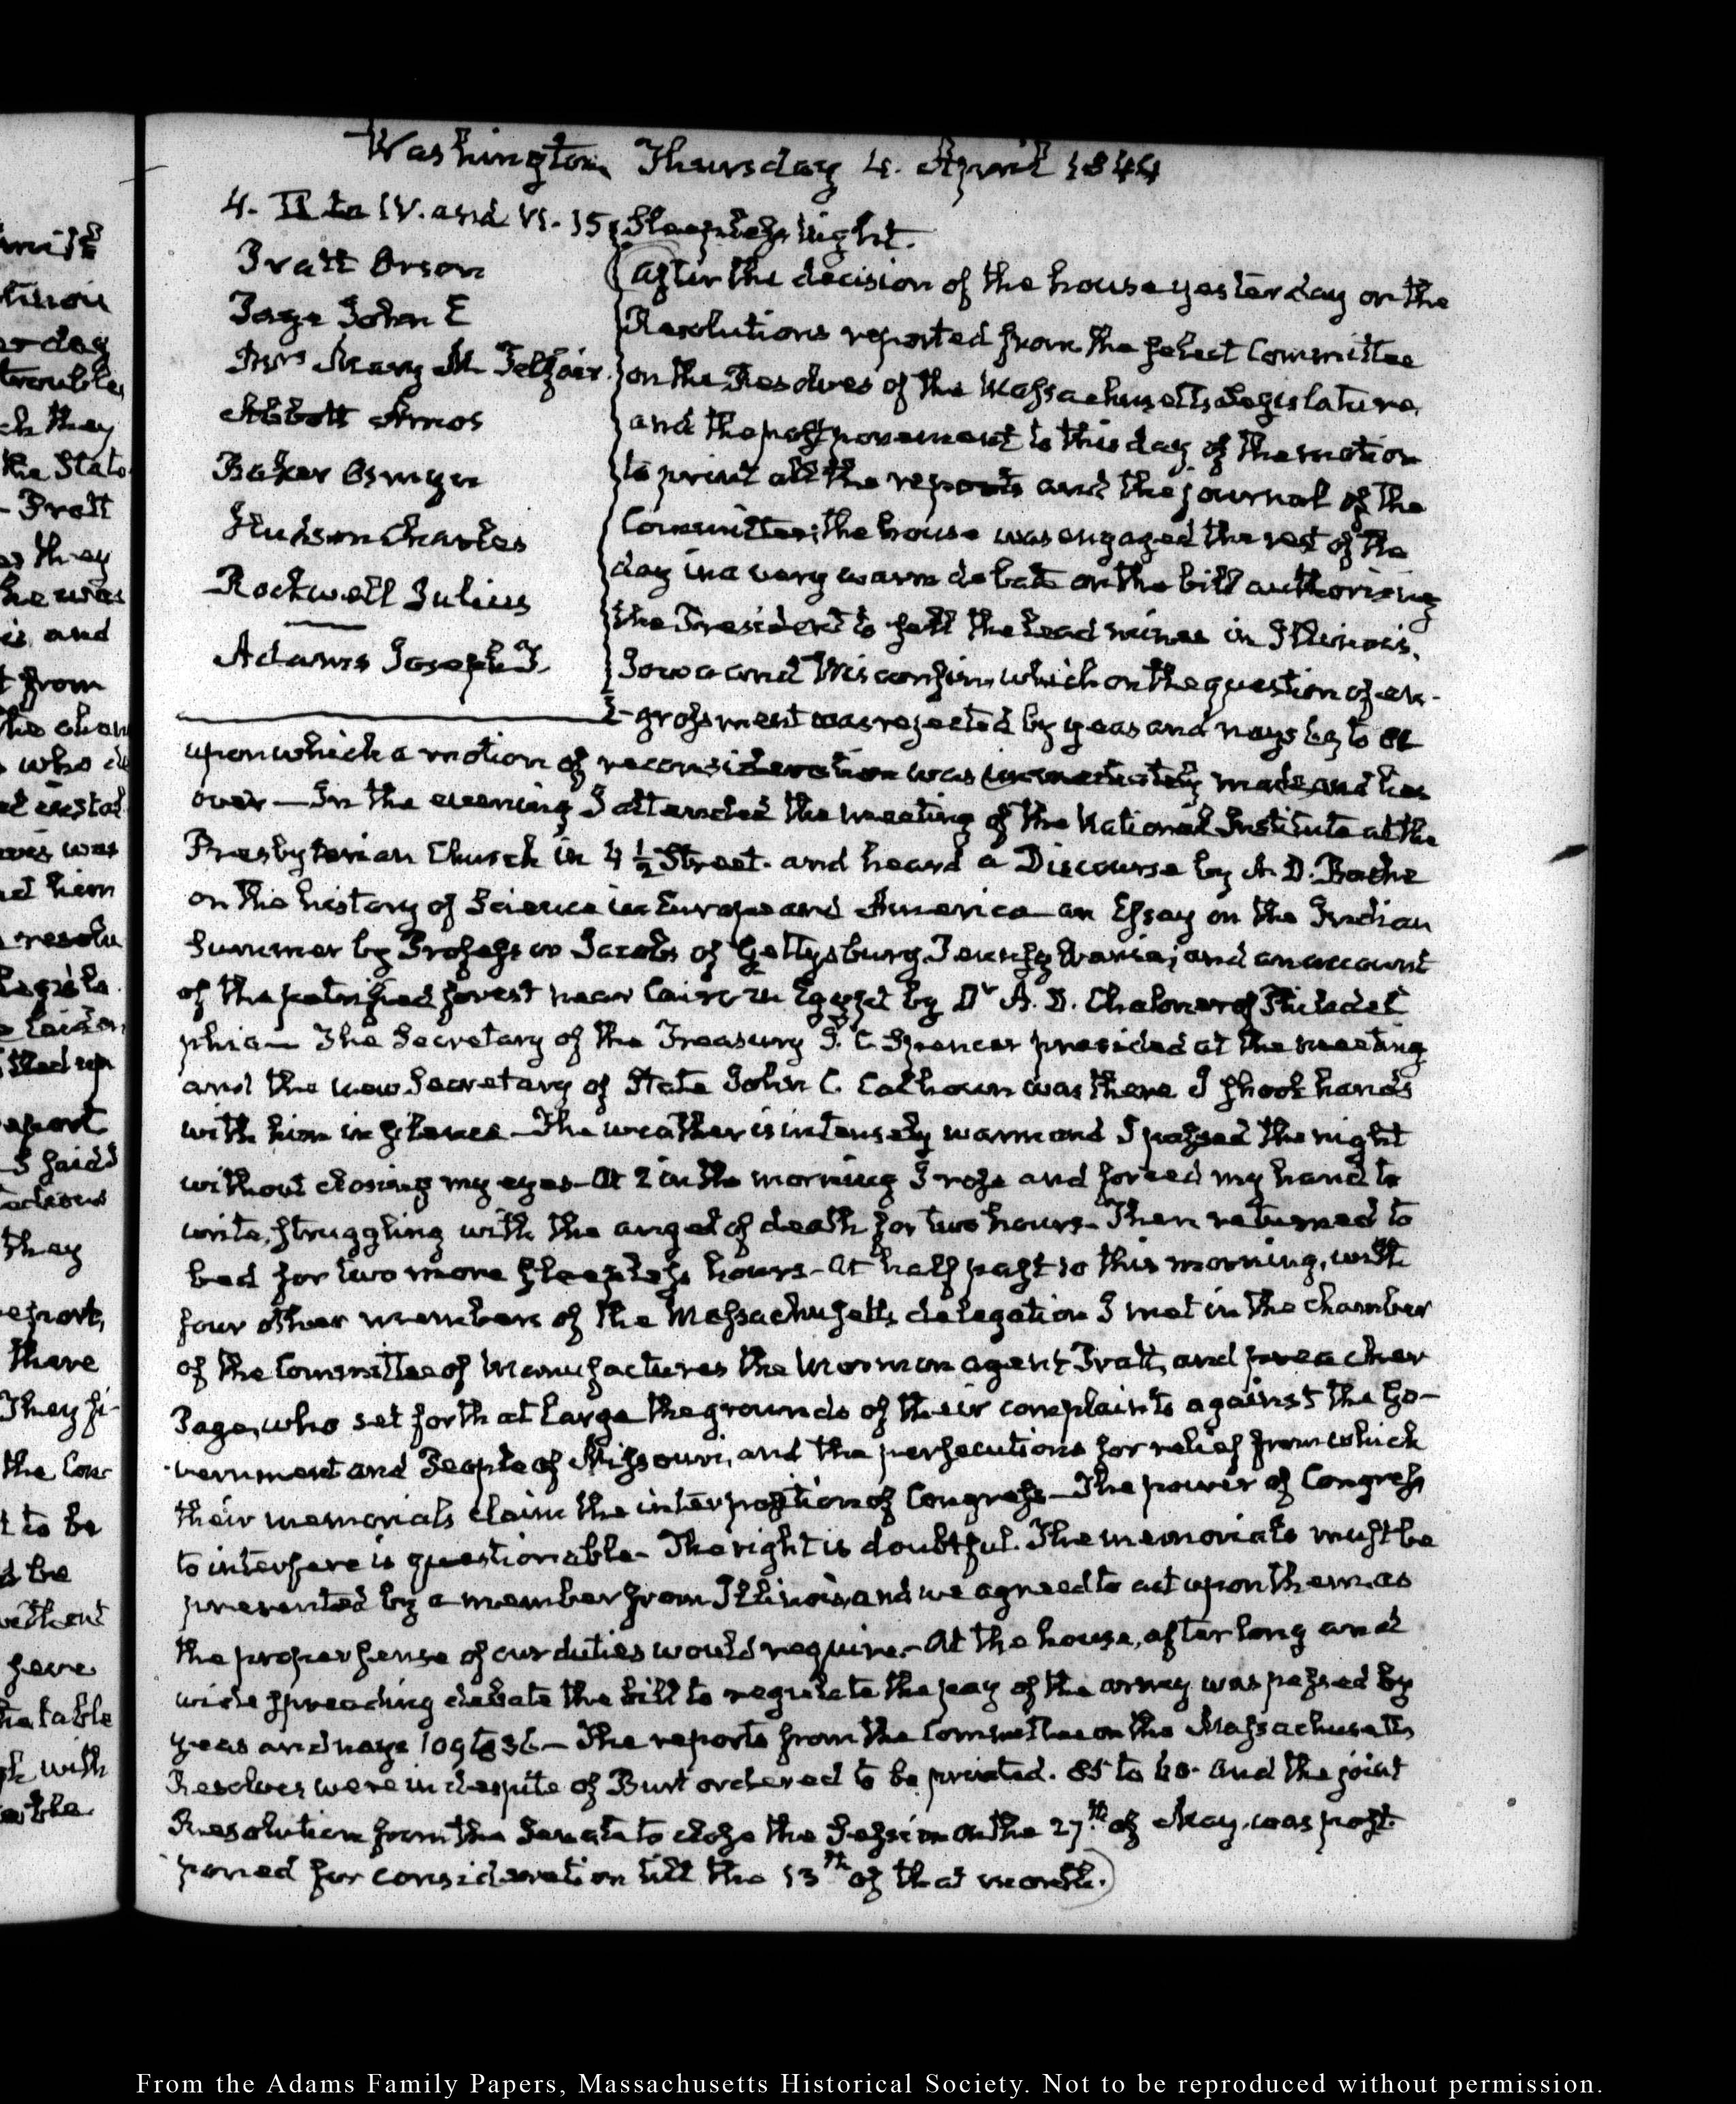 Washington Thursday 4. April 1844
4. II to IV. and VI. 15
Pratt Orson
Page John E
Mrs Mary M Telfair.
Abbott Amos
Baker Osmyn
Hudson Charles
Rockwell Julius
Adams Joseph
Sleepless night.
(After the decision of the house yesterday on the
Resolutions reported from the select Committee
on the Resolves of the Massachusetts Legislature,
and the postponement to this day of the motion
to print all the reports and the journal of the
Committee; the house was engaged the rest of the
day in a very warm debate on the bill authorising
the President to sell the Lead mines in Illinois,
Iowa and Wisconsin, which on the question of en-
-grossment was rejected by yeas and nays to 81
upon which a motion of reconsideration was immediately made and lies
over — In the evening I attended the meeting of the National Institute at the
Presbyterian Church in 4 1/2 Street. and heard a Discourse by A. D. Bache
on the history of Science in Europe and America — an Essay on the Indian
Summer by Professor Jacobs of Gettysburg Pennsylvania; and an account
of the petrified forest near Cairo in Egypt by Dr A. D. Chaloner of Philadel
phia — The Secretary of the Treasury J. C. Spencer presided at the meeting
and the new Secretary of State John C. Calhoun was there I shook hands
with him in silence — The weather is intensely warm and I passed the night
without closing my eyes — At 2 in the morning I rose and forced my hand to
write, struggling with the angel of death for two hours — Then returned to
bed for two more sleepless hours — At half past 10 this morning, with
four other members of the Massachusetts delegation I met in the chamber
of the Committee of Manufactures the Mormon agent Pratt, and preacher
Page, who set forth at large the grounds of their complaints against the Go-
-vernment and People of Missouri, and the persecutions for relief from which
their memorials claim the interposition of Congress — The power of Congress
to interfere is questionable — The right is doubtful. The memorials must be
presented by a member from Illinois, and we agreed to act upon them as
the proper sense of our duties would require. — At the house, after long and
wide spreading debate the bill to regulate the pay of the army was passed by
yeas and nays 109 to 36 — The reports from the Committee on the Massachusetts
Resolves were in despite of Burt ordered to be printed. 85 to 60. And the joint
Resolution from the Senate to close the Session on the 27th of May. was post-
poned for consideration till the 13th of that month.)
From the Adams Family Papers, Massachusetts Historical Society. Not to be reproduced without permission.